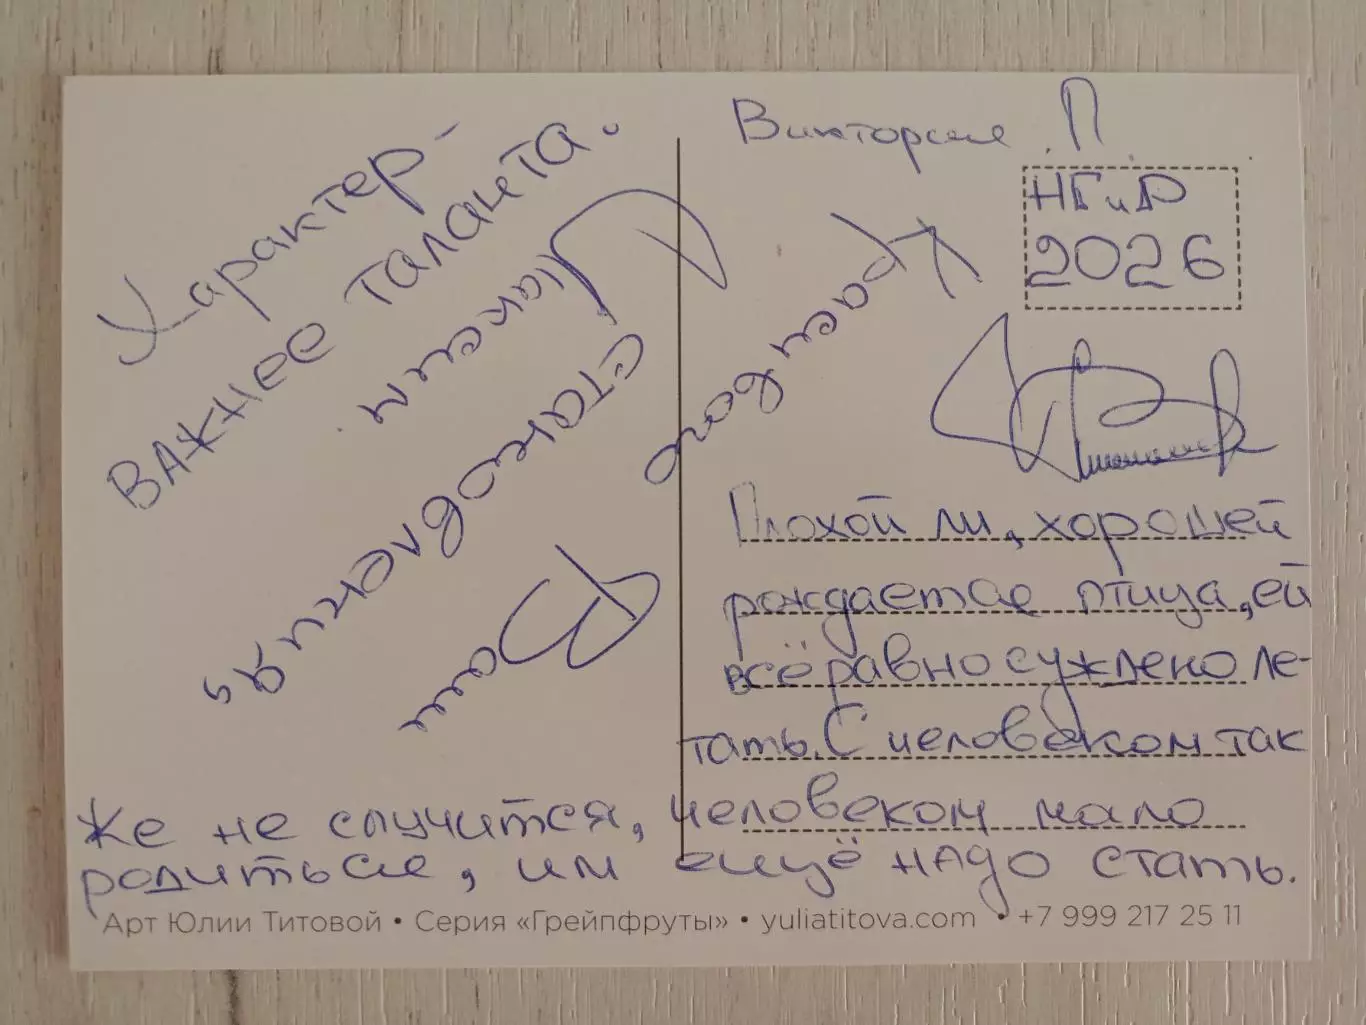 Виктория П.
НГиР
2026
Характер -
важнее таланта.
становления,
Плохой ли, хорошей
рождается птица, ей
всё равно суждено ле-
тать. С человеком так
же не случится, человеком мало
родиться, им ещё надо стать.
Арт Юлии Титовой • Серия «Грейпфруты» • yuliatitova.com • +7 999 217 25 11